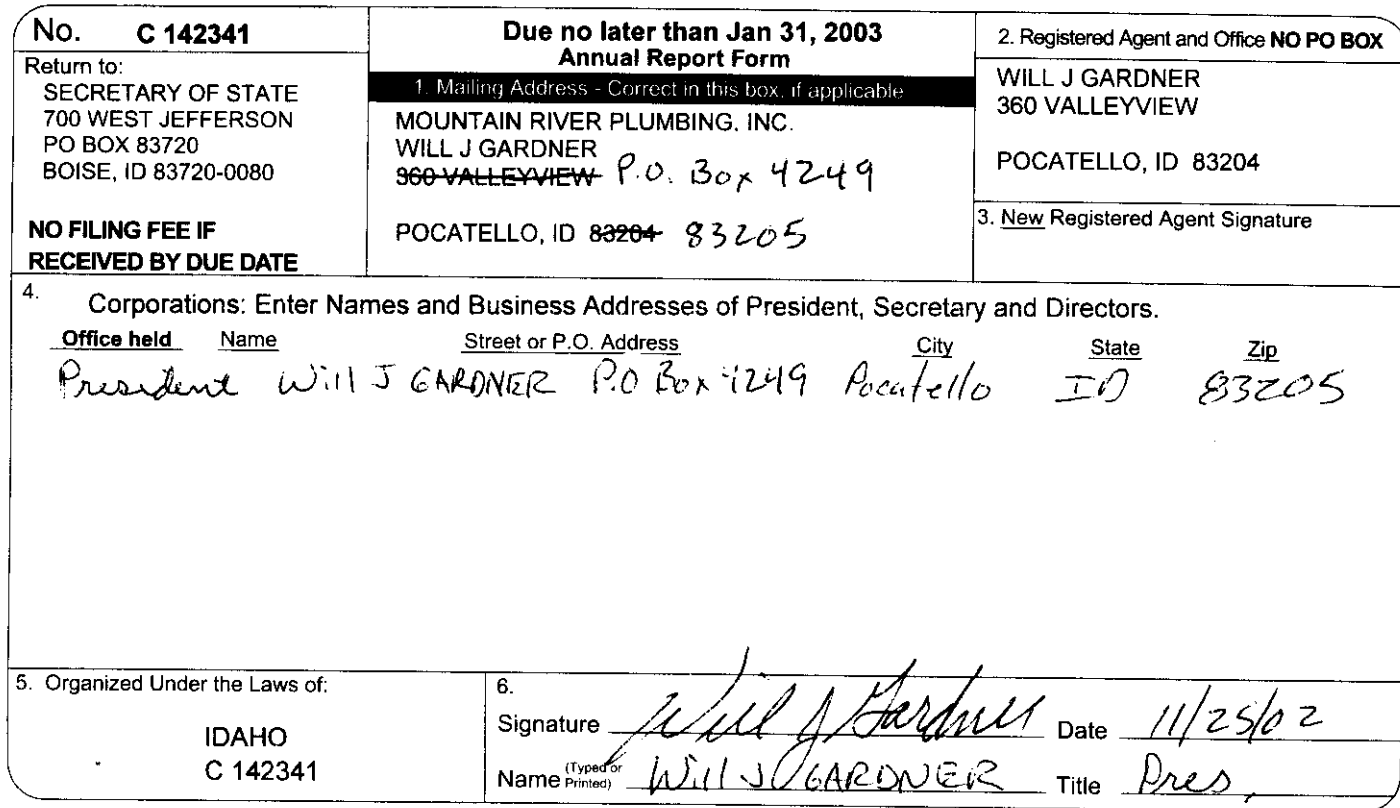 No. C 142341
Return to:
SECRETARY OF STATE
700 WEST JEFFERSON
PO BOX 83720
BOISE, ID 83720-0080
NO FILING FEE IF
RECEIVED BY DUE DATE
Due no later than Jan 31, 2003
Annual Report Form
1. Mailing Address - Correct in this box, if applicable
MOUNTAIN RIVER PLUMBING, INC.
WILL J GARDNER
360 VALLEYVIEW P.O. Box 4249
POCATELLO, ID 83204 83205
2. Registered Agent and Office NO PO BOX
WILL J GARDNER
360 VALLEYVIEW
POCATELLO, ID 83204
3. New Registered Agent Signature
4. Corporations: Enter Names and Business Addresses of President, Secretary and Directors.
Office held Name Street or P.O. Address City State Zip
President Will J GARDNER P.O Box 4249 Pocatello ID 83205
5. Organized Under the Laws of:
IDAHO
C 142341
6.
Signature Will J Gardner Date 11/25/02
Name (Typed or Printed) Will J GARDNER Title Pres,